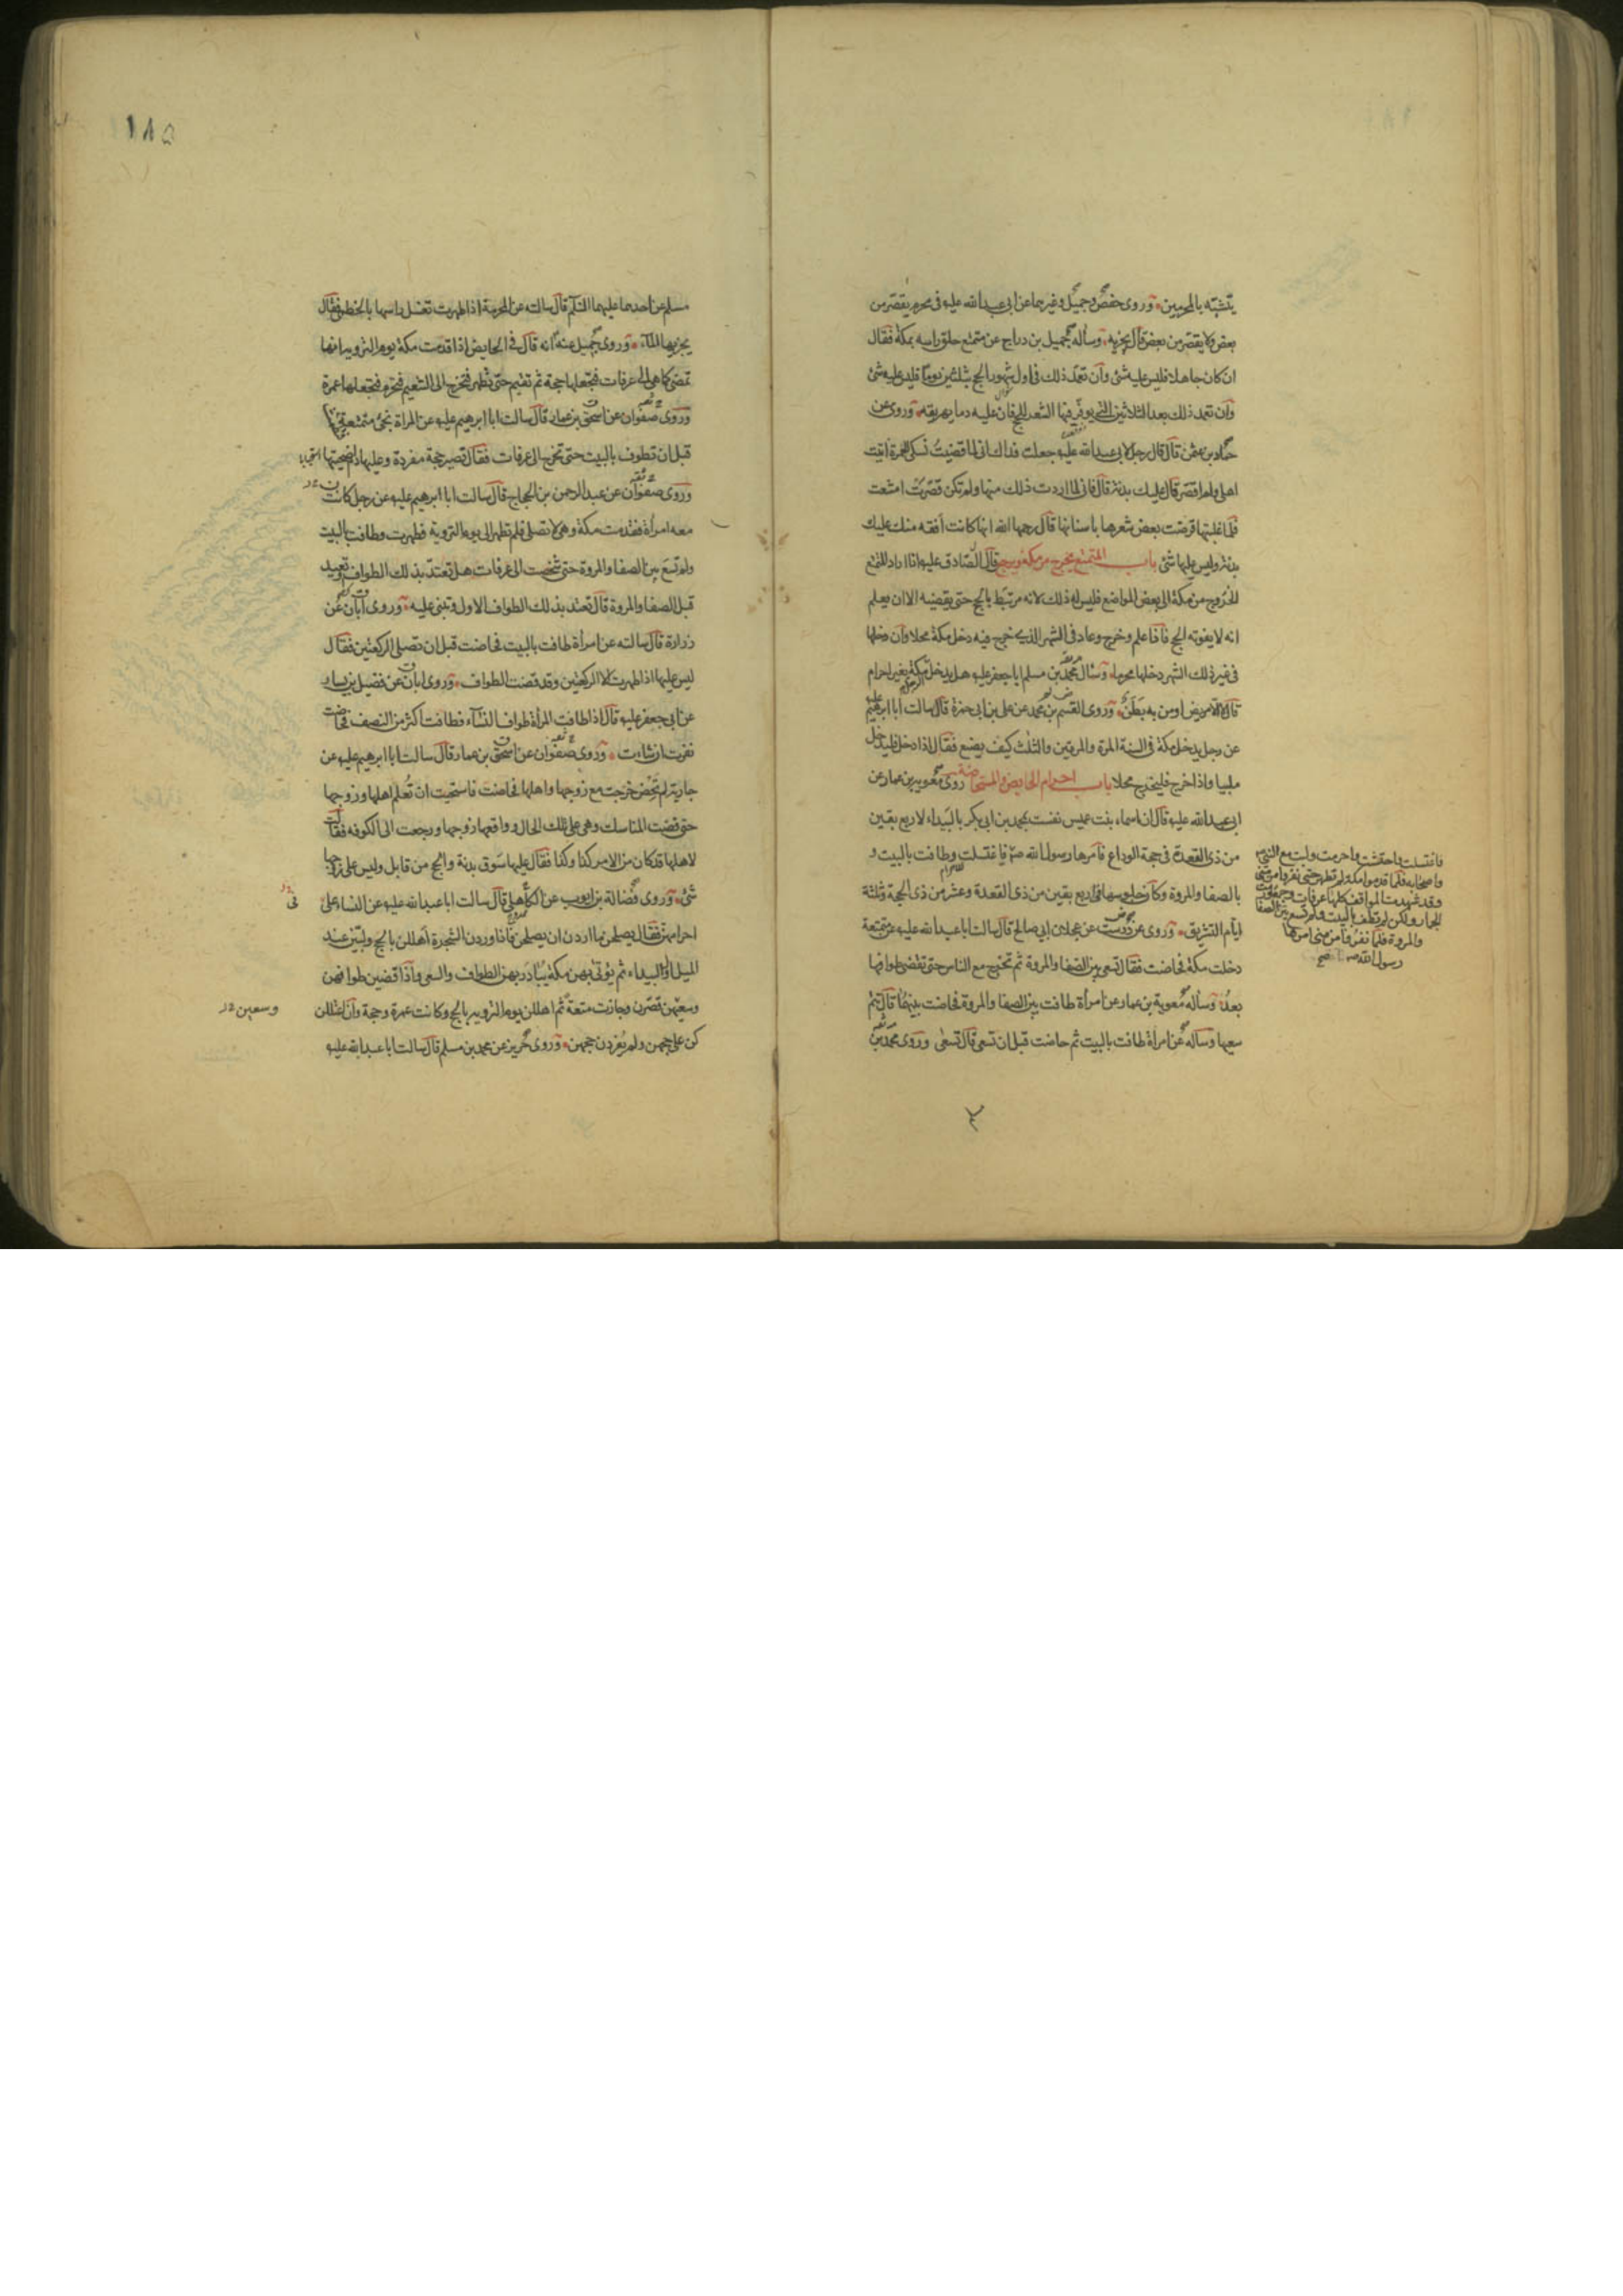 يتشبّه بالمحرمين وروى حفص وجميل وغيرهما عن ابى عبد الله عليه فى محرم يقصّر من
بعض ولا يقصّر من بعض قال يجزيه وسأله جميل بن دراج عن متمتع حلق راسه بمكة فقال
ان كان جاهلا فليس عليه شئ وان تعمّد ذلك فى اول شهور الحج بثلثين يوما فليس عليه شئ
وان تعمد ذلك بعد الثلاثين التى يوفّر فيها الشعر للحج فان عليه دما يهريقه وروى عن
حماد بن عثمن قال قال رجل لابى عبد الله عليه جعلت فداك انى لما قضيتُ نسكى للعمرة اتيت
اهلى ولم اقصّر قال عليك بدنة قال فانى لما اردت ذلك منها ولم تكن قصّرت امتنعت
فلما غلبتها قرضت بعض شعرها باسنانها قال رحمها الله انها كانت افقه منك عليك
بدنة وليس عليها شئ باب المتمتع يخرج من مكة ويرجع قال الصّادق عليه اذا اراد المتمتع
الخروج من مكة الى بعض المواضع فليس له ذلك لانه مرتبط بالحج حتى يقضيه الا ان يعلم
انه لا يفوته الحج فاذا علم وخرج وعاد فى الشهر الذى خرج فيه دخل مكة محلا وان دخلها
فى غير ذلك الشهر دخلها محرما وسئال محمد بن مسلم ابا جعفر عليه هل يدخل الرجل مكة بغير احرام
قال لا الا مريض او من به بَطَنٌ وروى القسم بن محمد عن على بن ابى حمزة قال سالت ابا ابرهيم عليه
عن رجل يدخل مكة فى السنة المرة والمرتين والثلث كيف يصنع فقال اذا دخل فليدخل
ملبيا واذا خرج فليخرج محلا باب احرام الحايض والمستحاضة روى معوية بن عمار عن
ابى عبد الله عليه قال ان اسماء بنت عميس نفست بمحمد بن ابى بكر بالبَيداء لاربع بقين
من ذى القعدة فى حجة الوداع فامرها رسول الله ص فاغتسلت وطافت بالبيت و
بالصفا والمروة وكان جلوسها فى اربع بقين من ذى القعدة وعشر من ذى الحجة وثلثة
ايام التشريق وروى عن درست عن عجلان ابى صالح قال سالت ابا عبد الله عليه عن متمتعة
دخلت مكة فحاضت فقال تسعى بين الصفا والمروة ثم تخرج مع الناس حتى تقضى طوافها
بعدُ وسأله معوية بن عمار عن امرأة طافت بين الصفا والمروة فحاضت بينهما قال تتم
سعيها وسأله عن امرأة طافت بالبيت ثم حاضت قبل ان تسعى قال تسعى وروى محمد بن
فاغتسلت واحتشت واحرمت ولبت مع النبى ص
واصحابه فلما قدموا مكة لم تطهر حتى نفروا من منى
وقد شهدت المواقف كلها عرفات وجمعا ورمت
الجمار ولكن لم تطف بالبيت ولم تسع بين الصفا
والمروة فلما نفروا من منى امرها
رسول الله ص صح
١٨٥
مسلم عن احدهما عليهما السّلم قال سالته عن المحرمة اذا طهرت تغسل راسها بالخطمى فقال
يجزيها المآء وروى جميل عنه انه قال فى الحايض اذا قدمت مكة يوم التروية انها
تمضى كما هى الى عرفات فتجعلها حجة ثم تقيم حتى تطهر فتخرج الى التنعيم فتحرم فتجعلها عمرة
وروى صفوان عن اسحق بن عمار قال سالت ابا ابرهيم عليه عن المراة تجئ متمتعة
قبل ان تطوف بالبيت حتى تخرج الى عرفات فقال تصير حجة مفردة وعليها دم اضحيتها
وروى صفوان عن عبد الرحمن بن الحجاج قال سالت ابا ابرهيم عليه عن رجل كانت
معه امرأة فقدمت مكة وهى لا تصلى فلم تطهر الى يوم التروية فطهرت وطافت بالبيت
ولم تسع بين الصفا والمروة حتى شخصت الى عرفات هل تعتدّ بذلك الطواف او تعيد
قبل الصفا والمروة قال تعتد بذلك الطواف الاول وتبنى عليه وروى ابان عن
زرارة قال سالته عن امرأة طافت بالبيت فحاضت قبل ان تصلى الركعتين فقال
ليس عليها اذا طهرت الا الركعتين وقد قضت الطواف وروى ابان عن فضيل بن يسار
عن ابى جعفر عليه قال اذا طافت المرأة طواف النسآء فطافت اكثر من النصف فحاضت
نفرت ان شاءت وروى صفوان عن اسحق بن عمار قال سالت ابا ابرهيم عليه عن
جارية لم تَحِض خرجت مع زوجها واهلها فحاضت فاستحيت ان تُعلم اهلها وزوجها
حتى قضت المناسك وهى على تلك الحال وواقعها زوجها ورجعت الى الكوفه فقالت
لاهلها قد كان من الامر كذا وكذا فقال عليها سَوق بدنة والحج من قابل وليس على زوجها
شئ وروى فضالة بن ايوب عن الكاهلى قال سالت ابا عبد الله عليه عن النساء على
فى
احرامهن فقال يصلحن ما اردن ان يصلحن فاذا وردن الشجرة اهللن بالحج ولبّين عند
الميل اول البيداء ثم يؤتى بهن مكة يُبَادَر بهن الطواف والسعى فاذا قضين طوافهن
وسعيهن قصّرن وجازت متعةً ثم اهللن يوم التروية بالحج وكانت عمرة وحجة وان اعتللن
وسعين
كن على حجهن ولم يُفردن حجهن وروى حريز عن محمد بن مسلم قال سالت ابا عبد الله عليه